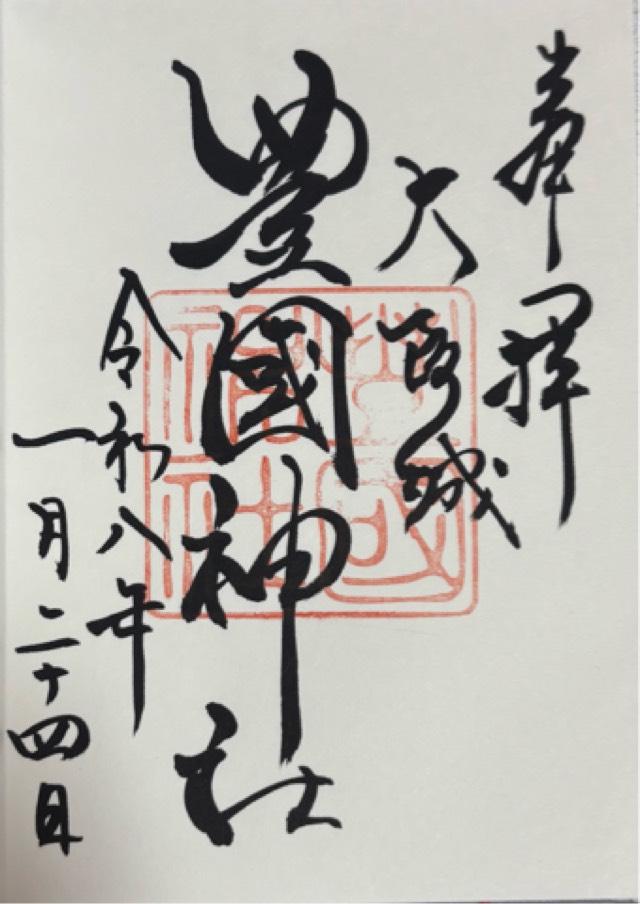 奉拝
大阪城
豊國神社
令和八年
一月二十四日
豊國神社